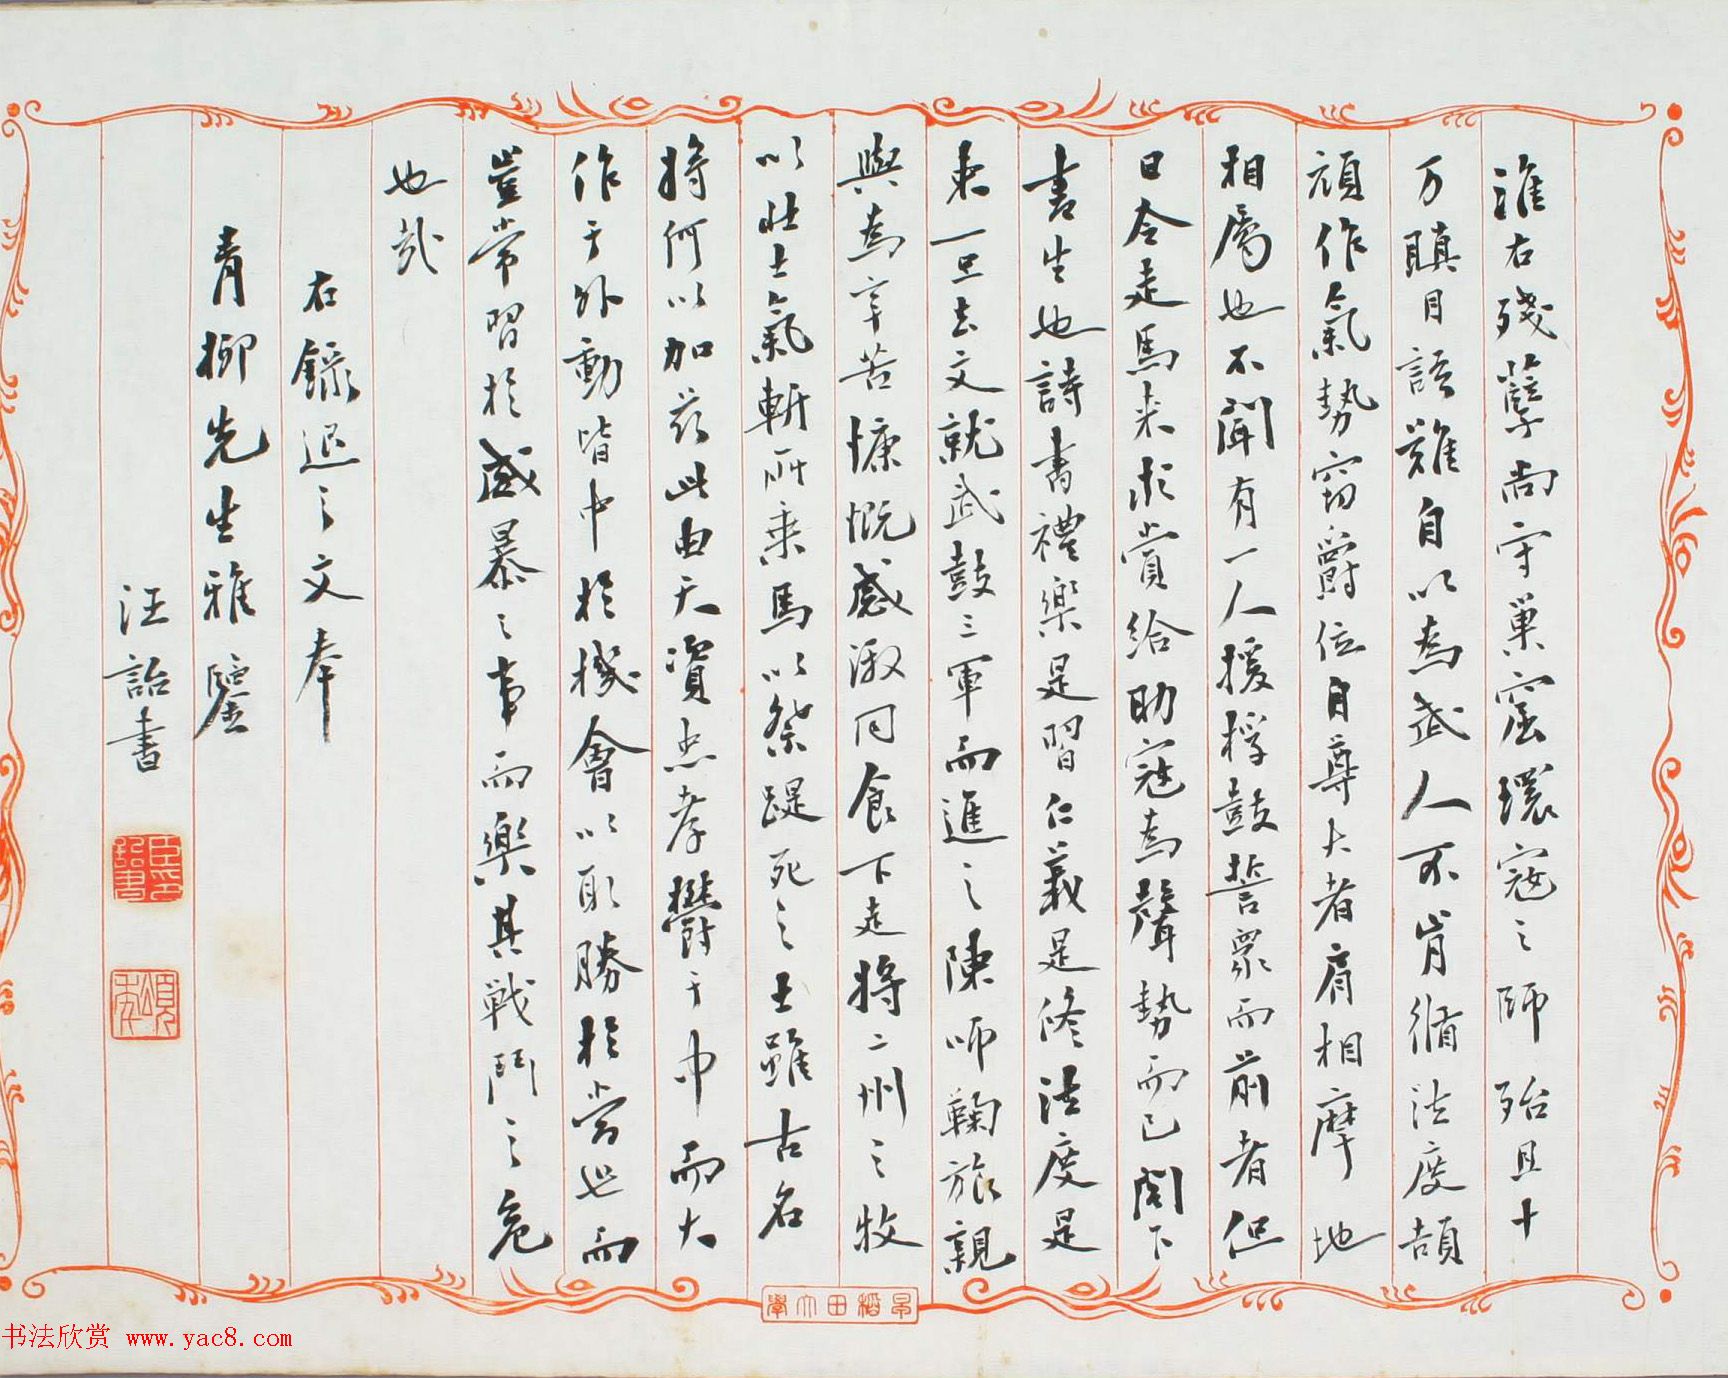 淮右殘孽尚守巢窟環寇之師殆且十
万瞋目語難自以為武人不肯循法度頡
頏作氣勢竊爵位自尊大者肩相摩地
相屬也不聞有一人援桴鼓誓眾而前者但
日令走馬来求賞給助寇為聲勢而已閤下
書生也詩書禮樂是習仁義是修法度是
束一旦去文就武鼓三軍而進之陳師鞠旅親
與為辛苦慷慨感激同食下走將二州之牧
以壯士氣斬所乘馬以祭踶死之士雖古名
將何以加茲此由天資忠孝鬱于中而大
作于外動皆中於機會以取勝於當世而
豈常習於威暴之事而樂其戰鬥之危
也哉
右錄退之文奉
青柳先生雅鑒
汪詒書
頌年
早稻田大學
书法欣赏 www.yac8.com